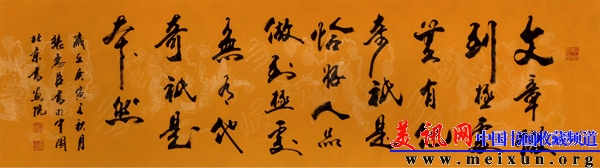 文章做
到極處
無有他
奇祗是
恰好人品
做到極處
無有他
奇祗是
本然
歲在庚寅秋月
書於中國
北京書畫院
美讯网 中国书画收藏频道
www.meixun.org